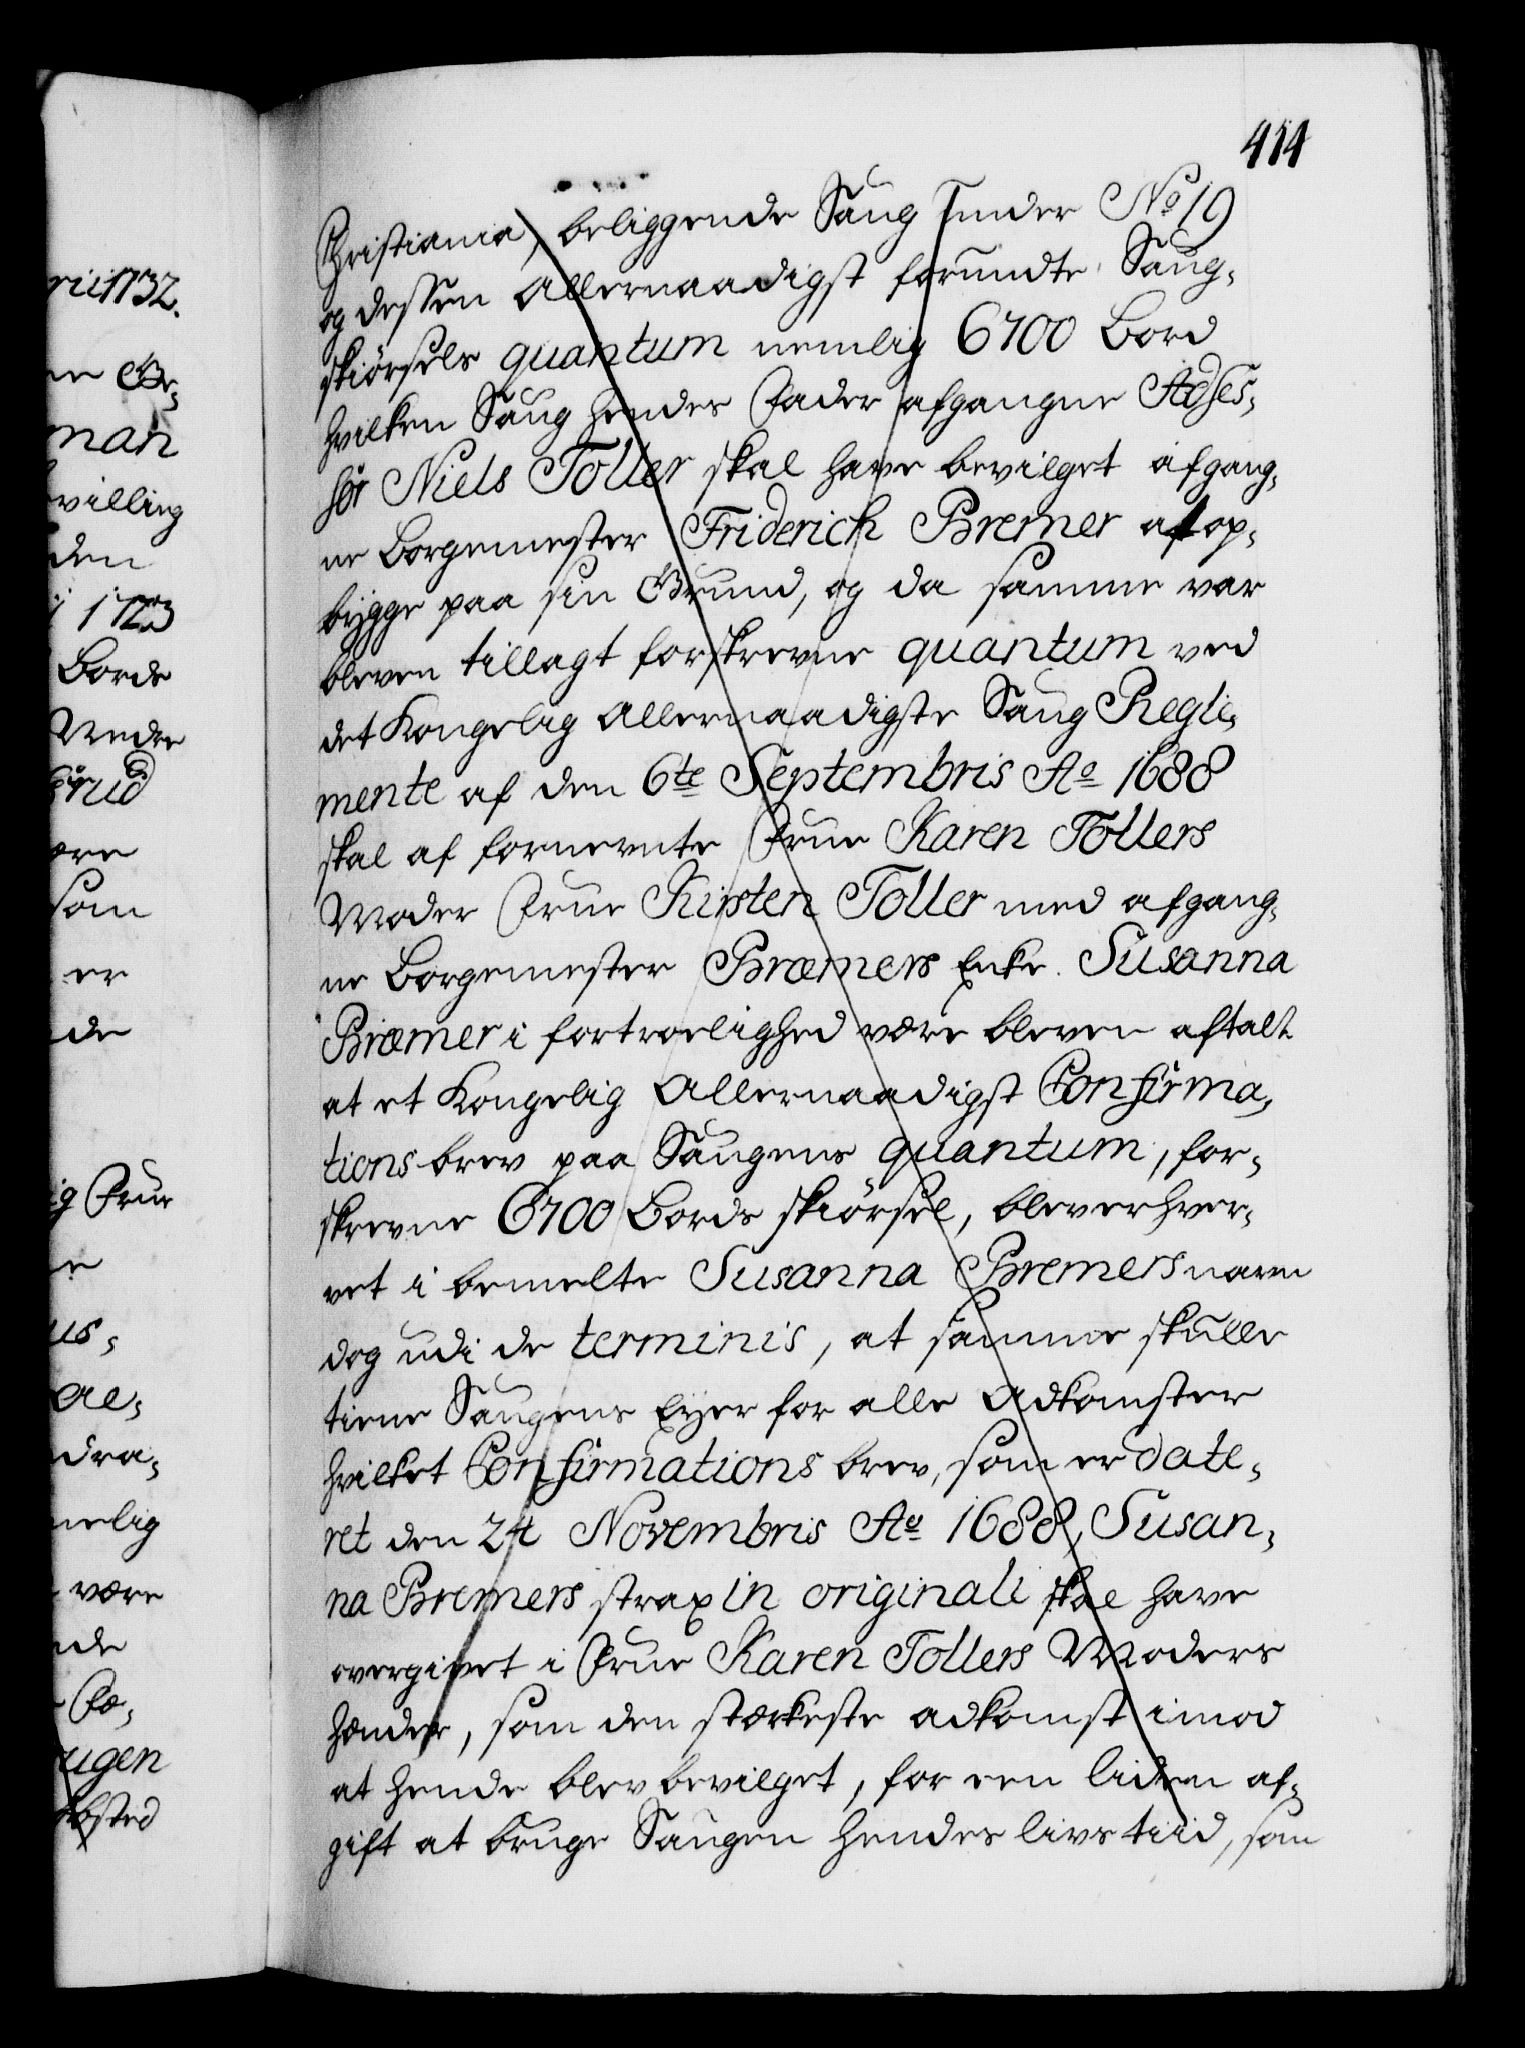 414
Christiania, beliggende Saug under No 19
og dessen Allernaadigst forundte Saug-
skiørsels quantum nemlig 6700 Bord
hvilken Saug hendes Fader afgangne Asses-
sor Niels Toller skal have bevilget afgang-
ne Borgemester Friderich Bremer at op-
bygge paa sin Grund, og da samme var
bleven tillagt forskrevne quantum ved
det Kongelig Allernaadigste Saug Regle-
mente af den 6te Septembris Ao 1688
skal af fornevnte Frue Karen Tollers
Moder Frue Kirsten Toller med afgang-
ne Borgemester Bræmers Enke Susanna
Bræmer i fortroelighed være bleven aftalt
at et Kongelig Allernaadigst Confirma-
tions brev paa Saugens quantum, for-
skrevne 6700 Bords skiørsel, blev erhver-
vet i bemelte Susanna Bremers navn
dog udi de terminis, at samme skulle
tiene Saugens Eyer for alle Adkomster
hvilket Confirmations brev, som er date-
ret den 24 Novembris Ao 1688, Susan-
na Bremers strax in originali skal have
overgivet i Frue Karen Tollers Moders
hænder, som den stærkeste adkomst imod
at hende blev bevilget, for een liden af-
gift at bruge Saugen hendes livs tiid, som
rii 1732.
man
villing
den
1723
Borde
Nedre
rud
ære
som
er
de
ig Frue
e
us-
al-
dra-
nelig
være
nde
Fæ-
ugen
sted